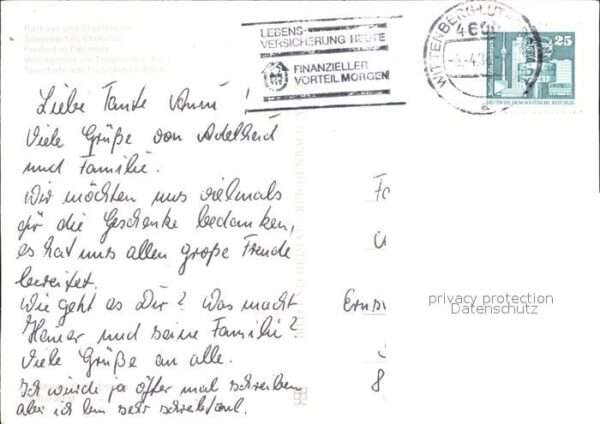 Rathaus und Stadtkirche
Sowjetisches Ehrenmal
Freibad in Piesteritz
Wohngebiet am Trajuhnschen Bach
Sporthalle am Trajuhnschen Bach
LEBENS-
VERSICHERUNG HEUTE
FINANZIELLER
VORTEIL MORGEN
WITTENBERG LUTHERSTADT
4600
25
DEUTSCHE DEMOKRATISCHE REPUBLIK
Liebe Tante Anni!
Viele Grüße von Adelheid
und Familie.
Wir möchten uns vielmals
für die Geschenke bedanken,
es hat uns allen große Freude
bereitet.
Wie geht es Dir? Was macht
Heiner und seine Familie?
Viele Grüße an alle.
Ich würde ja öfter mal schreiben
aber ich bin sehr schreibfaul.
Fa
Erns
8
BILD UND HEIMAT REICHENBACH
privacy protection
Datenschutz